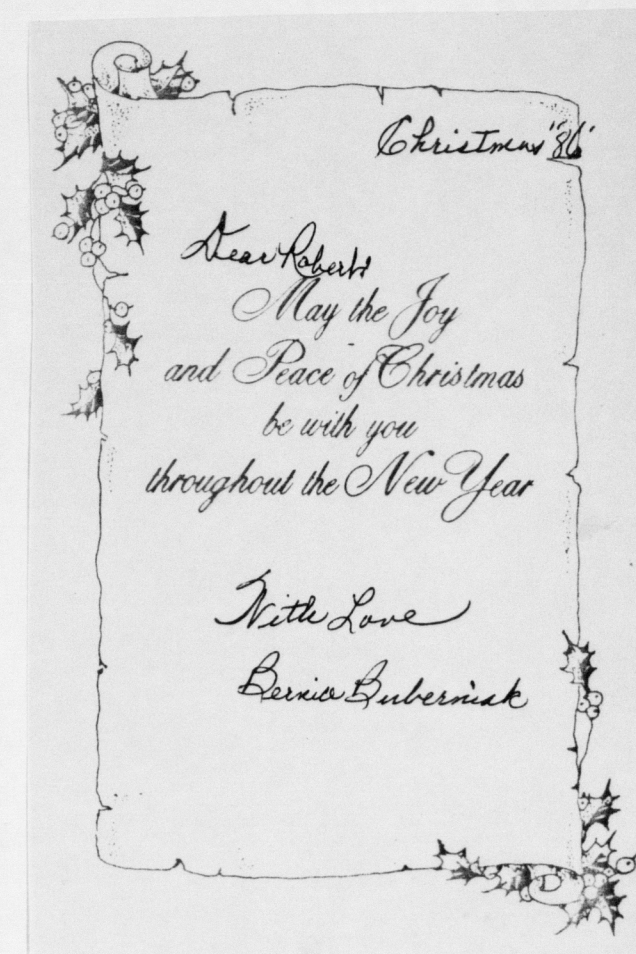 Christmas "86"
Dear Robert
May the Joy
and Peace of Christmas
be with you
throughout the New Year
With Love
Bernice Buberniak